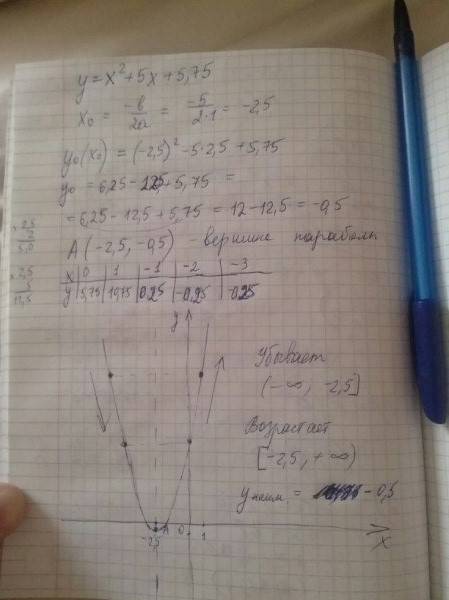 y = x² + 5x + 5,75
x₀ = -b/2a = -5/2·1 = -2,5
y₀(x₀) = (-2,5)² - 5·2,5 + 5,75
y₀ = 6,25 - 12,5 + 5,75 =
= 6,25 - 12,5 + 5,75 = 12 - 12,5 = -0,5
× 2,5
2
5,0
A (-2,5, -0,5) - вершина параболы
× 2,5
5
12,5
x | 0 | 1 | -1 | -2 | -3
y | 5,75 | 11,75 | 0,25 | -0,25 | -0,25
y
Убывает
(-∞, -2,5]
Возрастает
[-2,5, +∞)
y наим = -0,5
-2,5
0
1
x